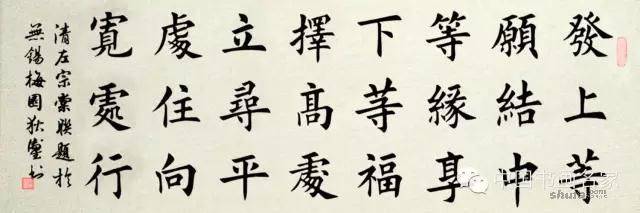 發上等
願結中
等緣享
下等福
擇高處
立尋平
處住向
寬處行
清左宗棠聯題於
無錫梅园狄
中国书画名家